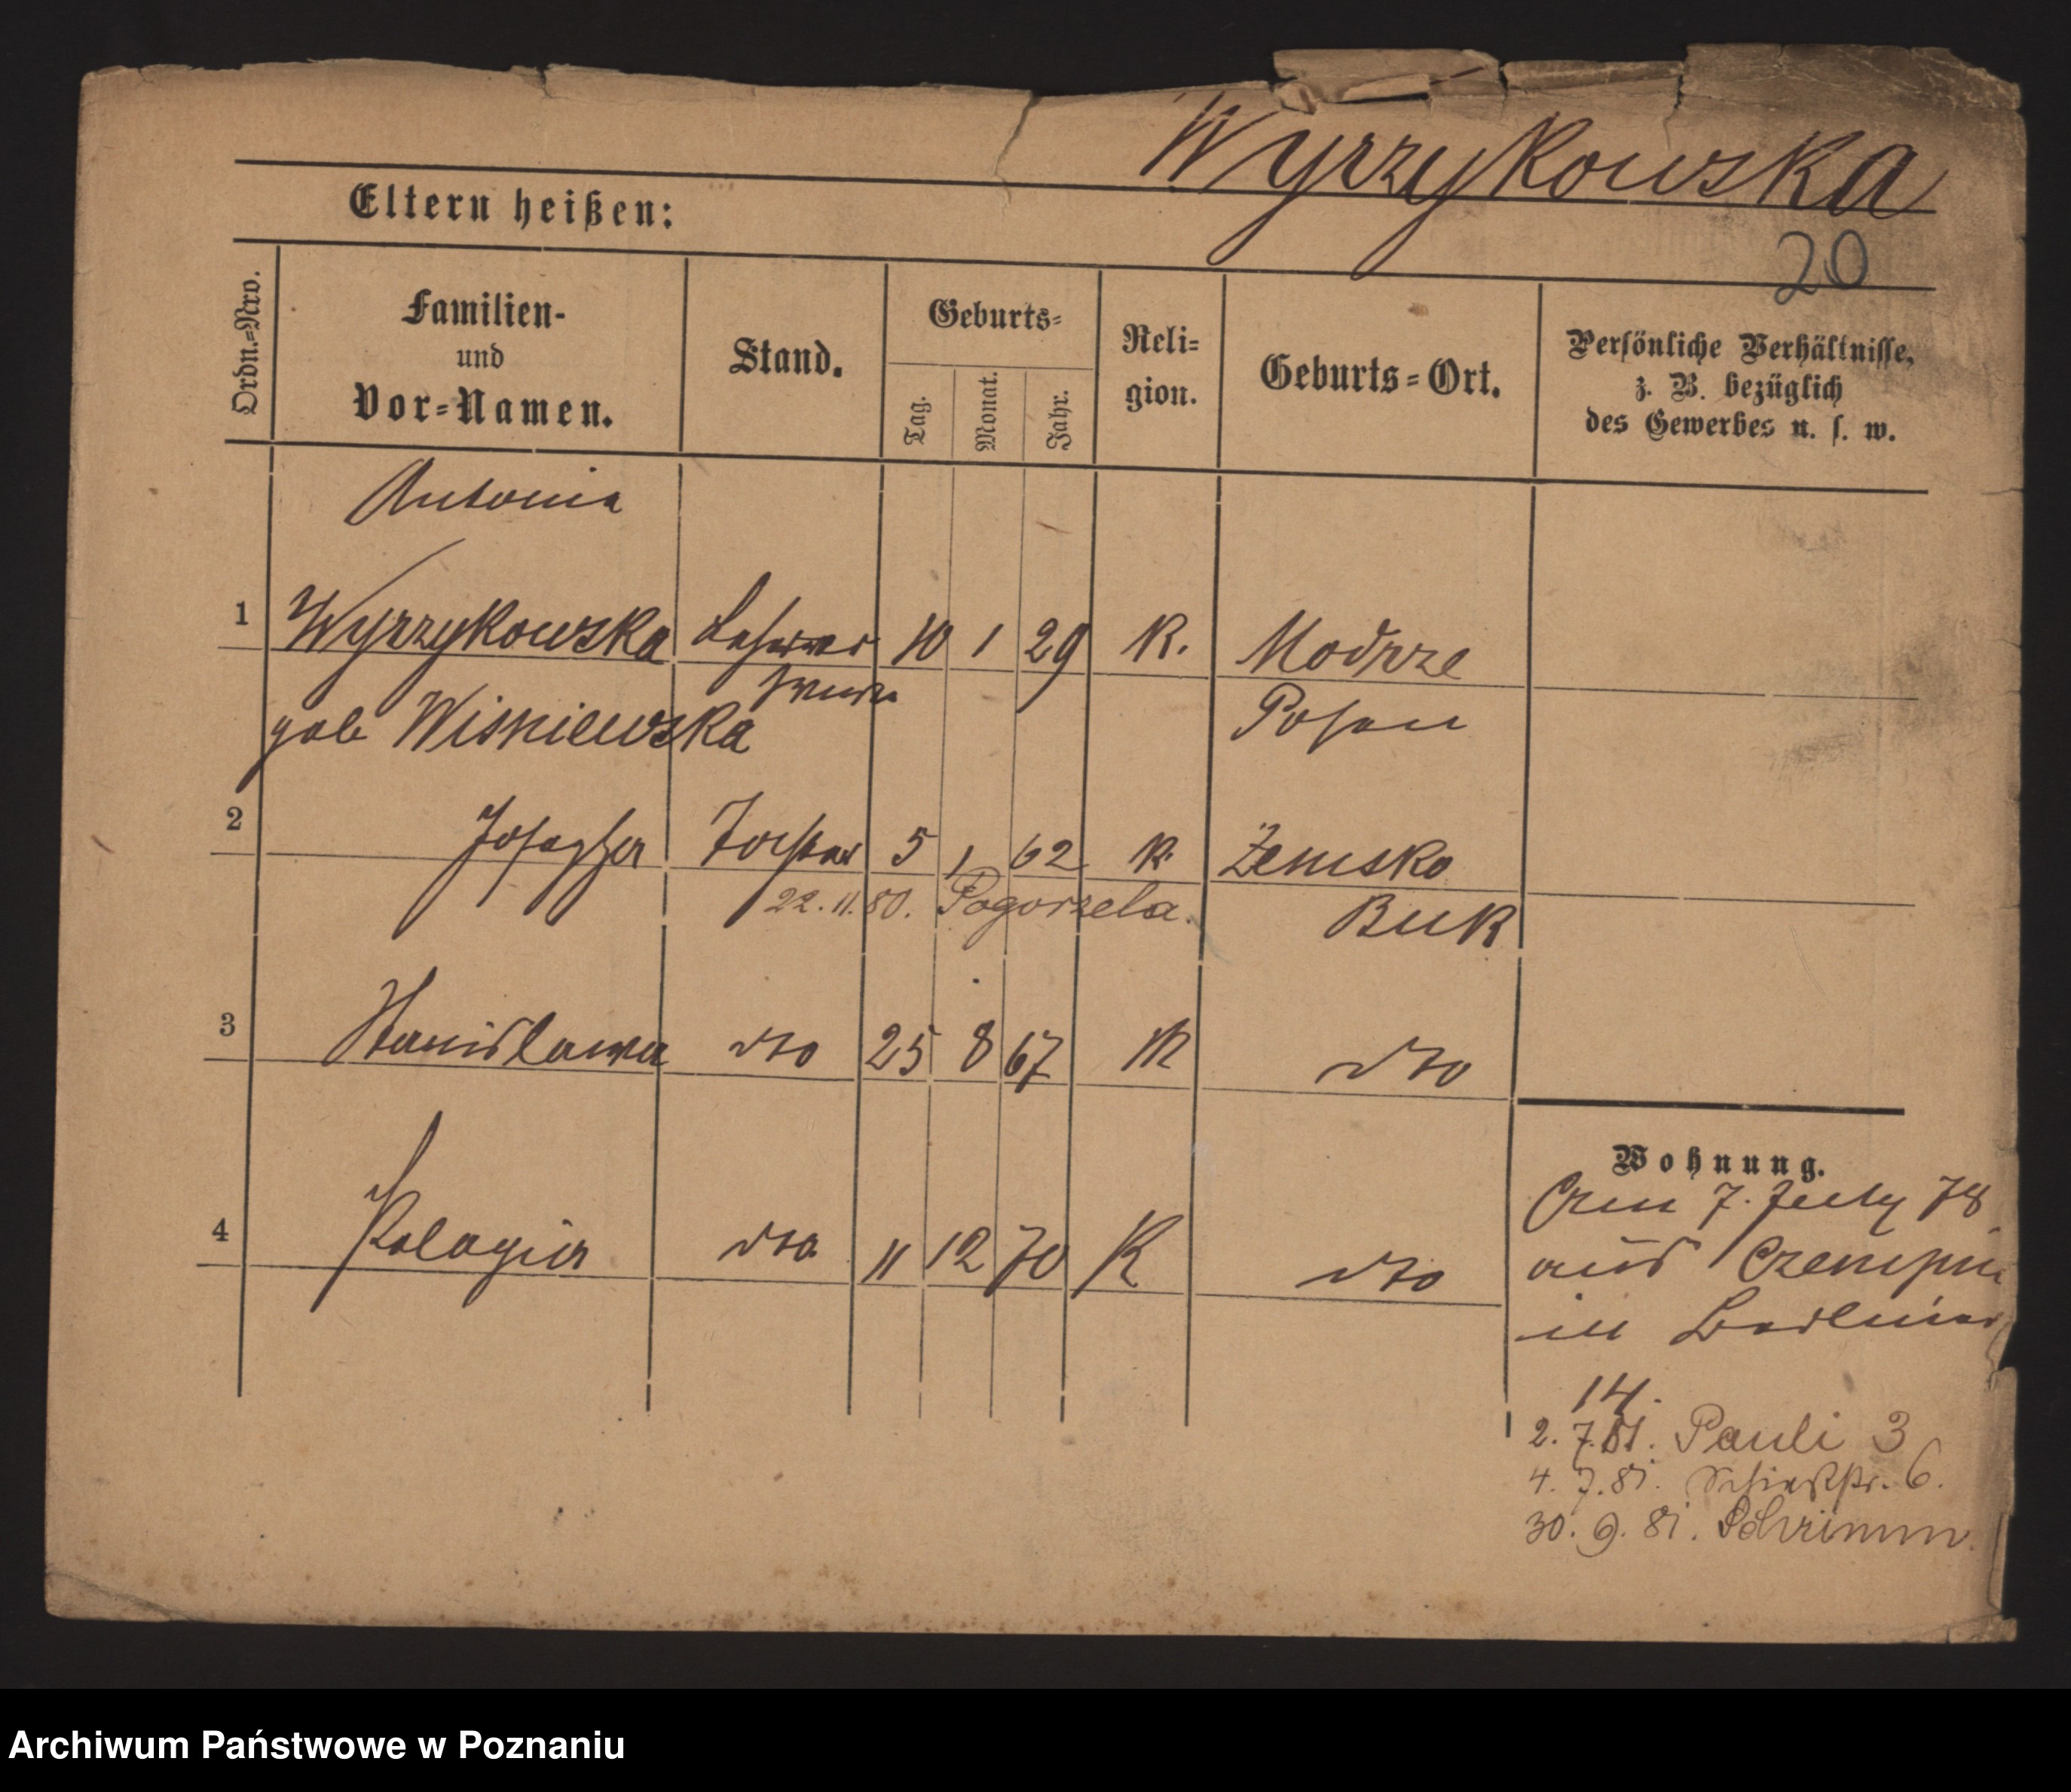 Wyrzykowska
Eltern heißen:
20
Ordn.-Nro.
Familien-
und
Vor-Namen.
Stand.
Geburts-
Tag.
Monat.
Jahr.
Reli-
gion.
Geburts-Ort.
Persönliche Verhältnisse,
z. B. bezüglich
des Gewerbes u. s. w.
Antonia
1 Wyrzykowska Lehrer 10 1 29 K. Modrze
geb Wisniewska Posen
2 Josepha Tochter 5 1 62 K. Zemsko
22.11.80. Pogorzela. Buk
3 Stanislawa dto 25 8 67 K dto
4 Pelagia dto 11 12 70 K dto
Wohnung.
7. July 78
aus Czempin
in
14.
2. 7.81. Pauli 3
4. 7. 81. Schießstr. 6.
30. 9. 81. Schrimm.
Archiwum Państwowe w Poznaniu